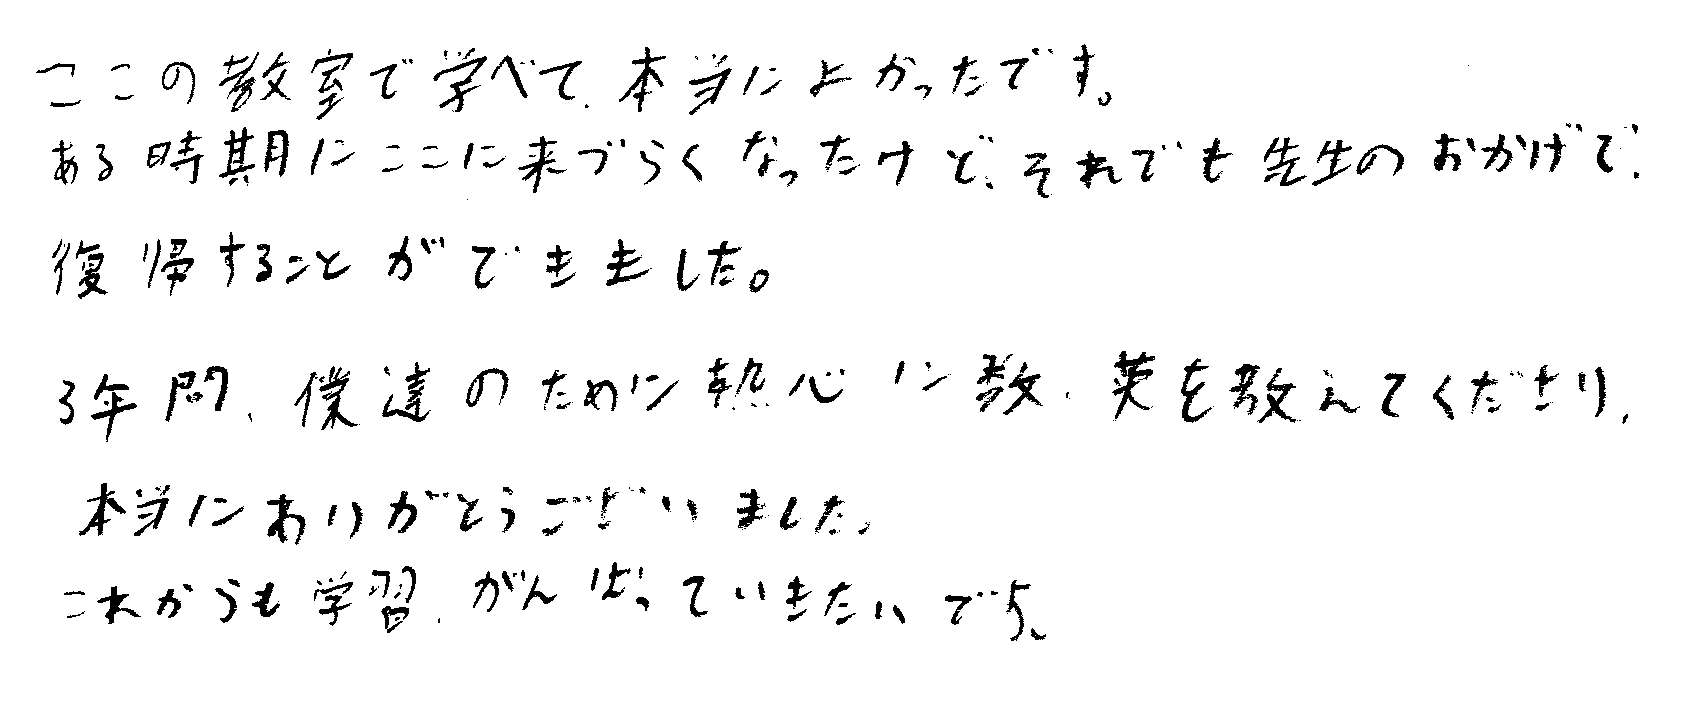 ここの教室で学べて、本当によかったです。
ある時期にここに来づらくなったけど、それでも先生のおかげで、
復帰することができました。
3年間、僕達のために熱心に数、英を教えてくださり、
本当にありがとうございました。
これからも学習、がんばっていきたいです。